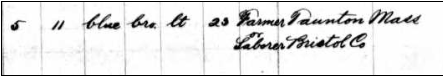 5 11 blue bro. lt 23 Farmer Taunton Mass
or Laborer Bristol Co